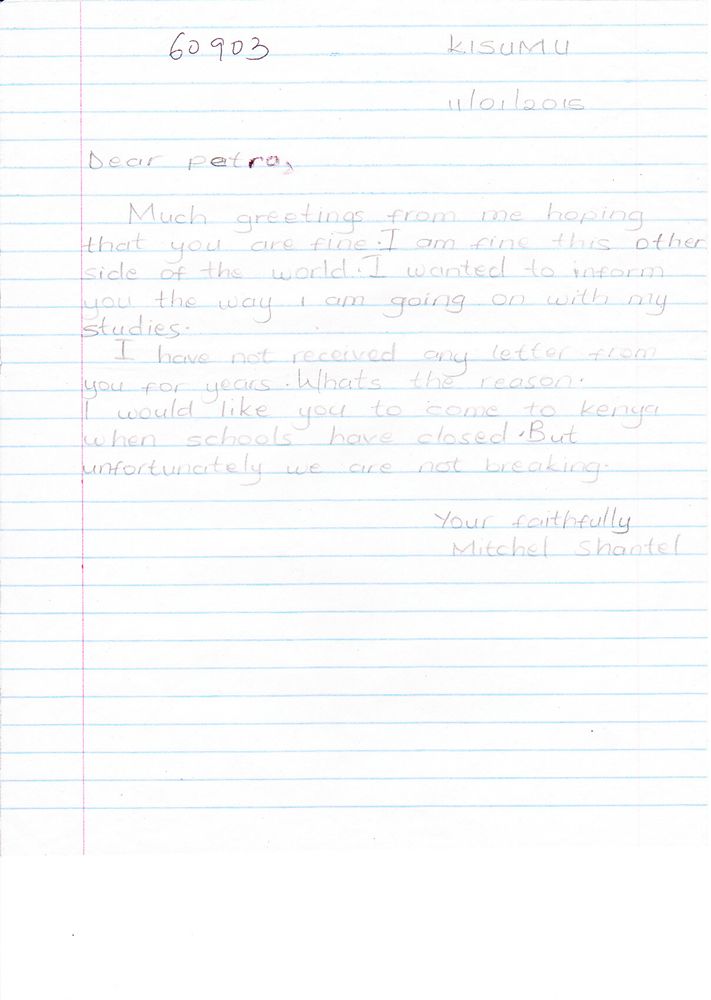 60903 KISUMU
11/01/2015
Dear petra,
Much greetings from me hoping
that you are fine. I am fine this other
side of the world. I wanted to inform
you the way i am going on with my
studies.
I have not received any letter from
you for years. Whats the reason.
I would like you to come to kenya
when schools have closed. But
unfortunately we are not breaking.
Your faithfully
Mitchel Shantel